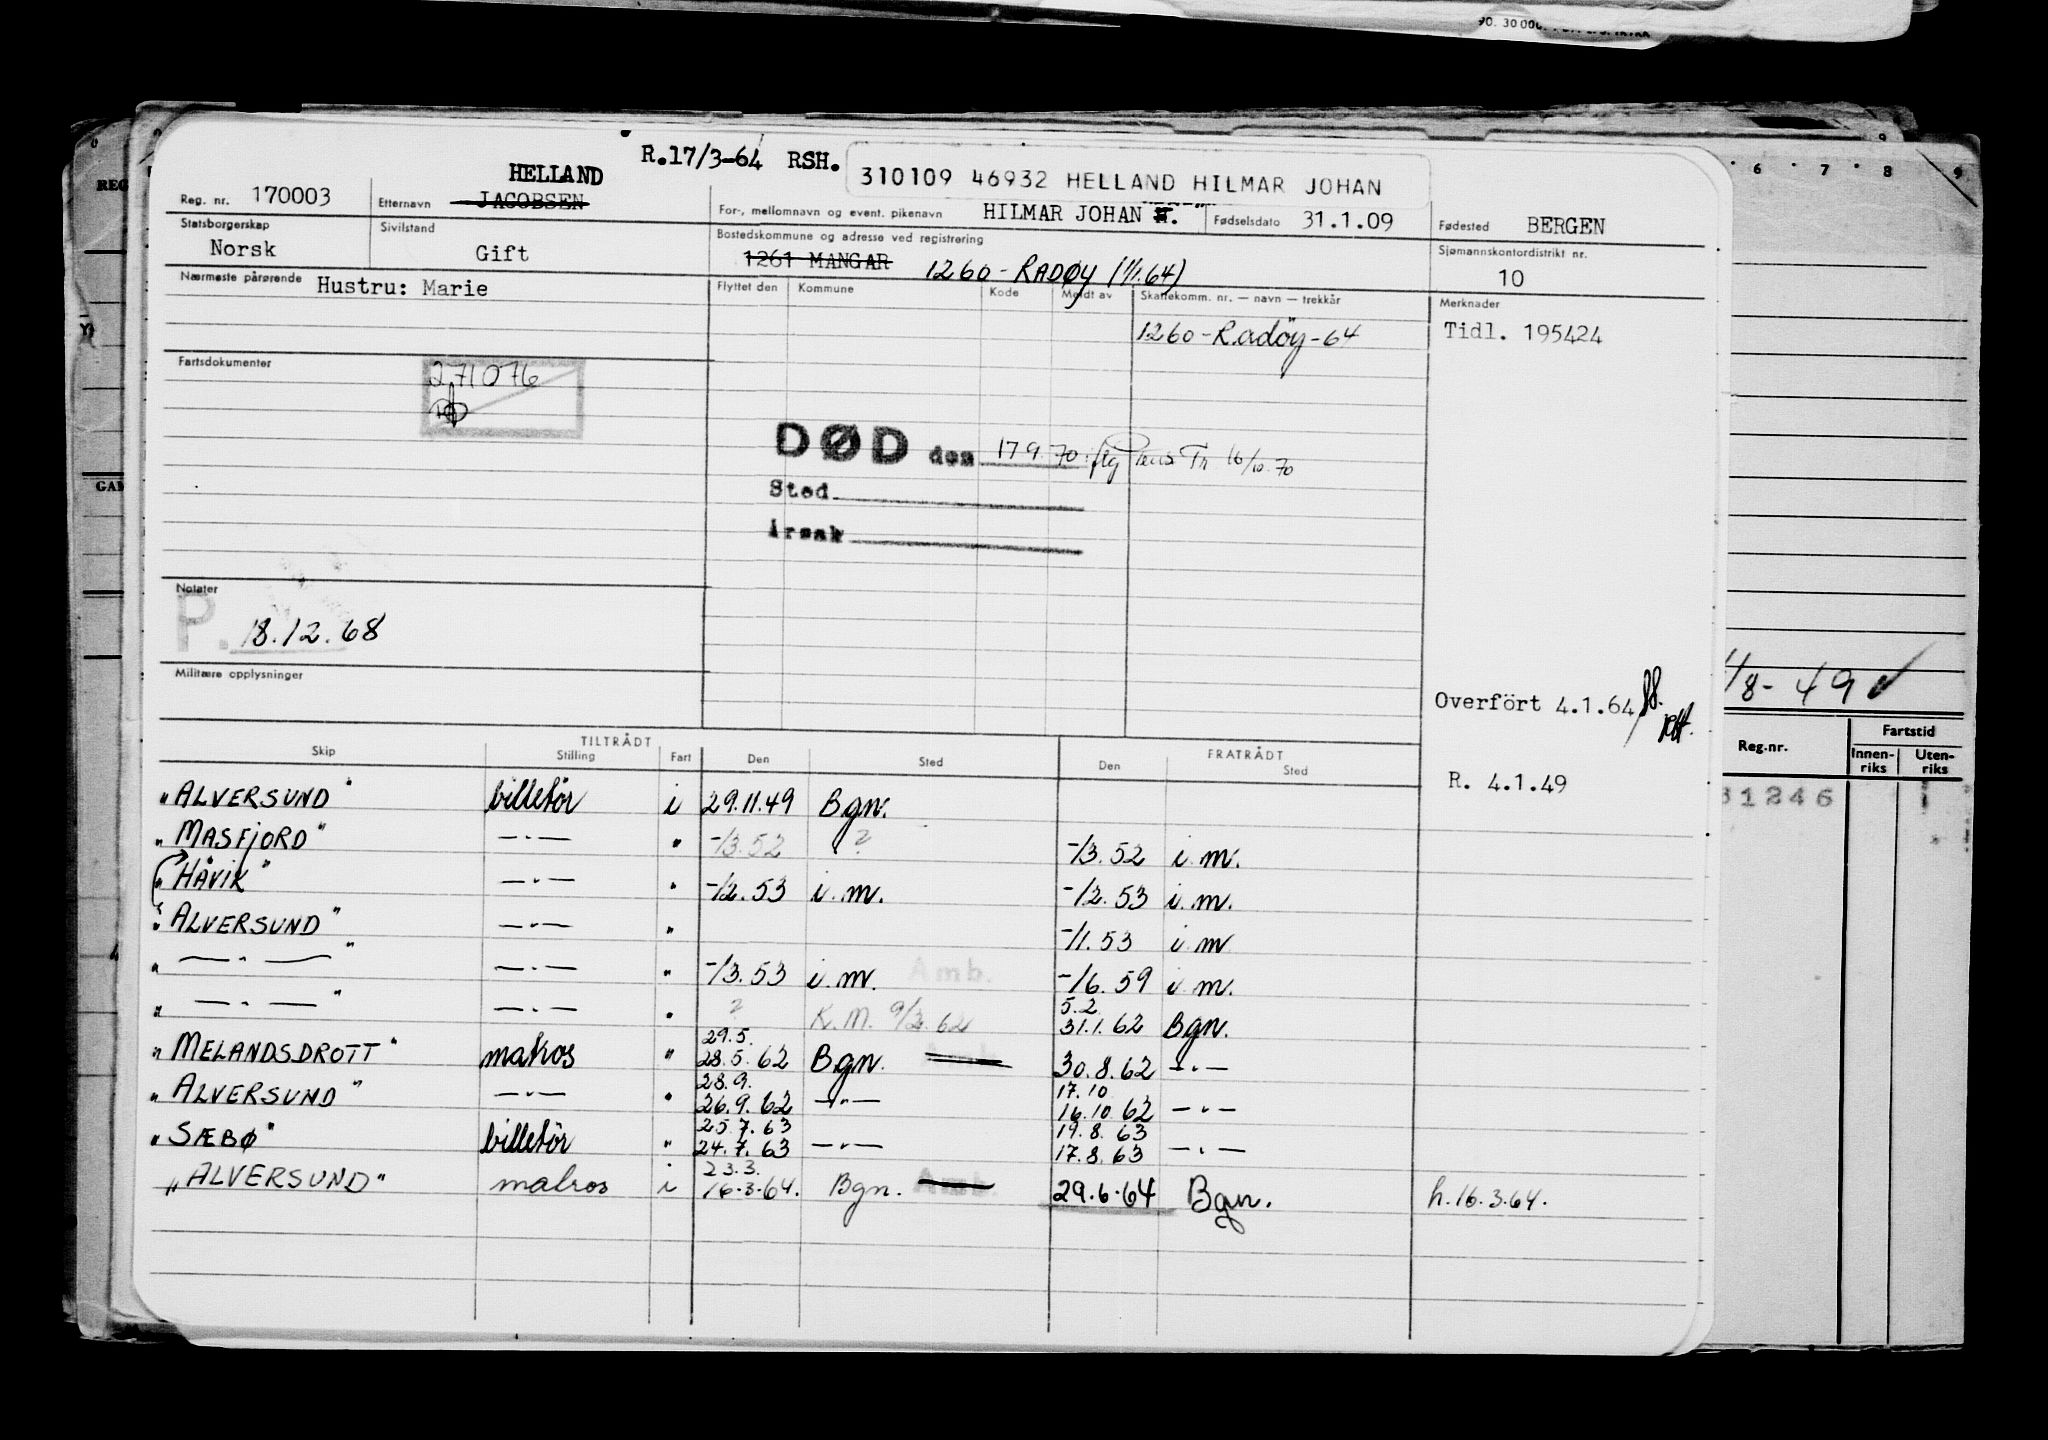 R.17/3-64 RSH. 310109 46932 HELLAND HILMAR JOHAN
HELLAND
Reg. nr. 170003 Etternavn JACOBSEN For-, mellomnavn og event. pikenavn HILMAR JOHAN Fødselsdato 31.1.09 Fødested BERGEN
Statsborgerskap Norsk Sivilstand Gift Bostedskommune og adresse ved registrering 1261 MANGAR 1260 - RADØY (1/1.64) Sjømannskontordistrikt nr. 10
Nærmeste pårørende Hustru: Marie Flyttet den Kommune Kode Meldt av Skattekomm. nr. — navn — trekkår Merknader
1260 - Radöy - 64 Tidl. 195424
Fartsdokumenter
271076
DØD den 17 9. 70 16/10. 70
Sted
Årsak
Notater
P. 18.12.68
Militære opplysninger
Overfört 4.1.64
TILTRÅDT FRATRÅDT
Skip Stilling Fart Den Sted Den Sted
R. 4.1.49
"ALVERSUND" billetör i 29.11.49 Bgn.
"MASFJORD" — " — " -/3.52 ? -/3.52 i.m.
"HÅVIK" — " — " -/2.53 i.m. -/2.53 i.m.
"ALVERSUND" — " — " -/1.53 i.m
" — " — " — " — " -/3.53 i.m. Amb. -/6.59 i.m.
5.2
" — " — " — " — " ? K.M. 9/2.62 31.1.62 Bgn.
29.5.
"MELANDSDROTT" matros " 28.5.62 Bgn. 30.8.62 — " —
28.9. 17.10
"ALVERSUND" — " — " 26.9.62 — " — 16.10.62 — " —
25.7.63 19.8.63
"SÆBØ" billetör " 24.7.63 — " — 17.8.63 — " —
23.3.
"ALVERSUND" matros i 16.3.64. Bgn. Amb. 29.6.64 Bgn. h.16.3.64.
6 7 8 9
REG
GAM
1/8 - 49
Reg.nr. Fartstid
Innenriks Utenriks
31246